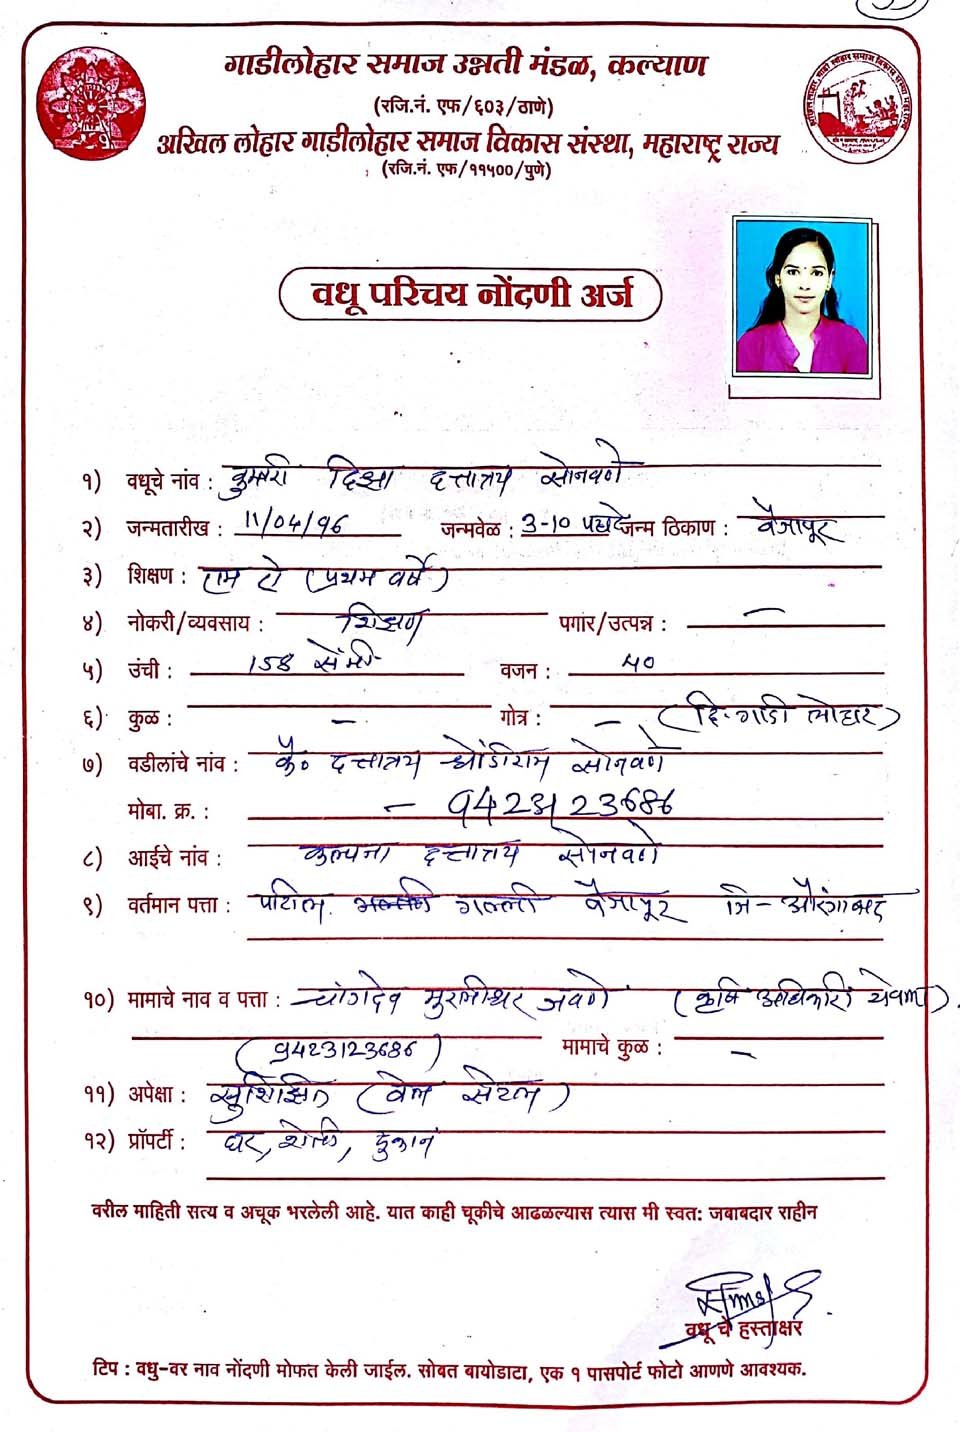 गाडीलोहार समाज उन्नती मंडळ, कल्याण
(रजि.नं. एफ/६०३/ठाणे)
अखिल लोहार गाडीलोहार समाज विकास संस्था, महाराष्ट्र राज्य
(रजि.नं. एफ/११५००/पुणे)
वधू परिचय नोंदणी अर्ज
१) वधूचे नांव : कुमारी दत्तात्रय सोनवणे
२) जन्मतारीख : 11/04/96 जन्मवेळ : 3-10 पहाटे जन्म ठिकाण : वैजापूर
३) शिक्षण : एम ए (प्रथम वर्षे)
४) नोकरी/व्यवसाय : शिक्षण पगार/उत्पन्न : —
५) उंची : 158 सेंमी वजन : ५०
६) कुळ : — गोत्र : — (हि. गाडी लोहार)
७) वडीलांचे नांव : कै० दत्तात्रय धोंडीराम सोनवणे
मोबा. क्र. : — 9423123686
८) आईचे नांव : कल्पना दत्तात्रय सोनवणे
९) वर्तमान पत्ता : पाटील गल्ली वैजापूर जि - औरंगाबाद
१०) मामाचे नाव व पत्ता : चांगदेव मुरलीधर (कृषि अधिकारी येवला).
(9423123686) मामाचे कुळ : —
११) अपेक्षा : सुशिक्षित (वेल सेटल)
१२) प्रॉपर्टी : घर, शेती, दुकान
वरील माहिती सत्य व अचूक भरलेली आहे. यात काही चूकीचे आढळल्यास त्यास मी स्वत: जबाबदार राहीन
वधू चे हस्ताक्षर
टिप : वधु-वर नाव नोंदणी मोफत केली जाईल. सोबत बायोडाटा, एक १ पासपोर्ट फोटो आणणे आवश्यक.